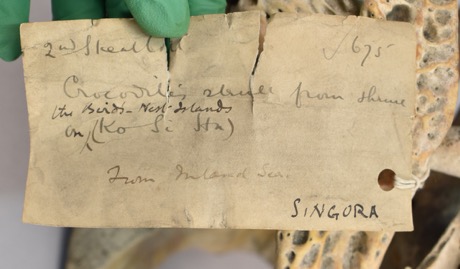 2nd Skeat Ex'd J 675
Crocodile's skull from shrine
on the Birds-Nest Islands (Ko Si Ha)
From Inland Sea.
SINGORA